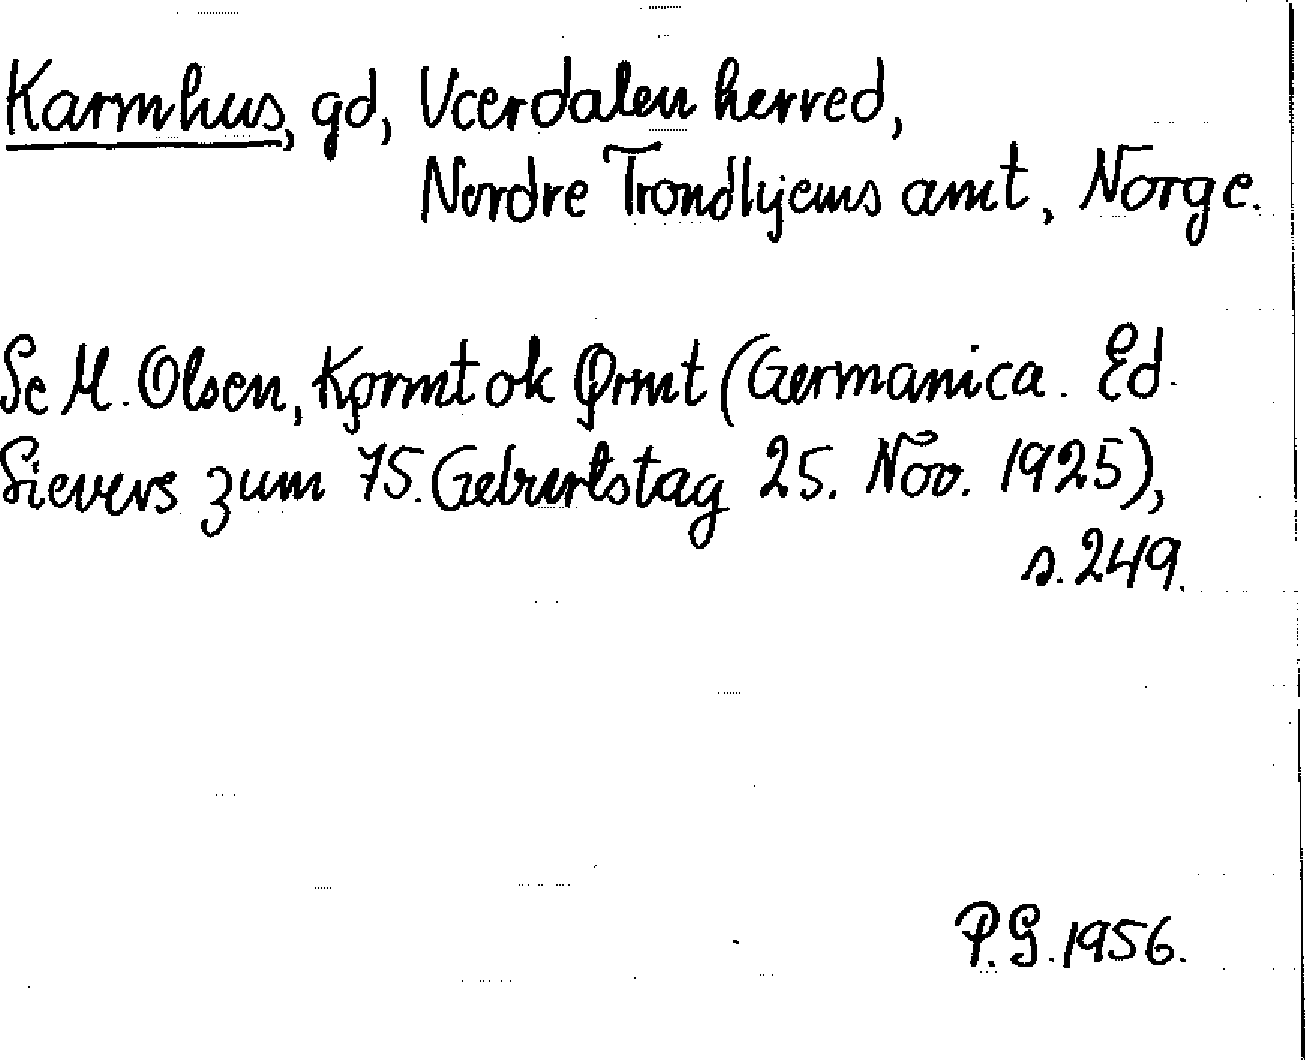 Karmhus, gd, Værdalen herred,
Nordre Trondhjems amt, Norge.
Se M. Olsen, Kǫrmt ok Ǫrmt (Germanica. Ed.
Sievers zum 75. Geburtstag 25. Nov. 1925),
s. 249.
P.G. 1956.